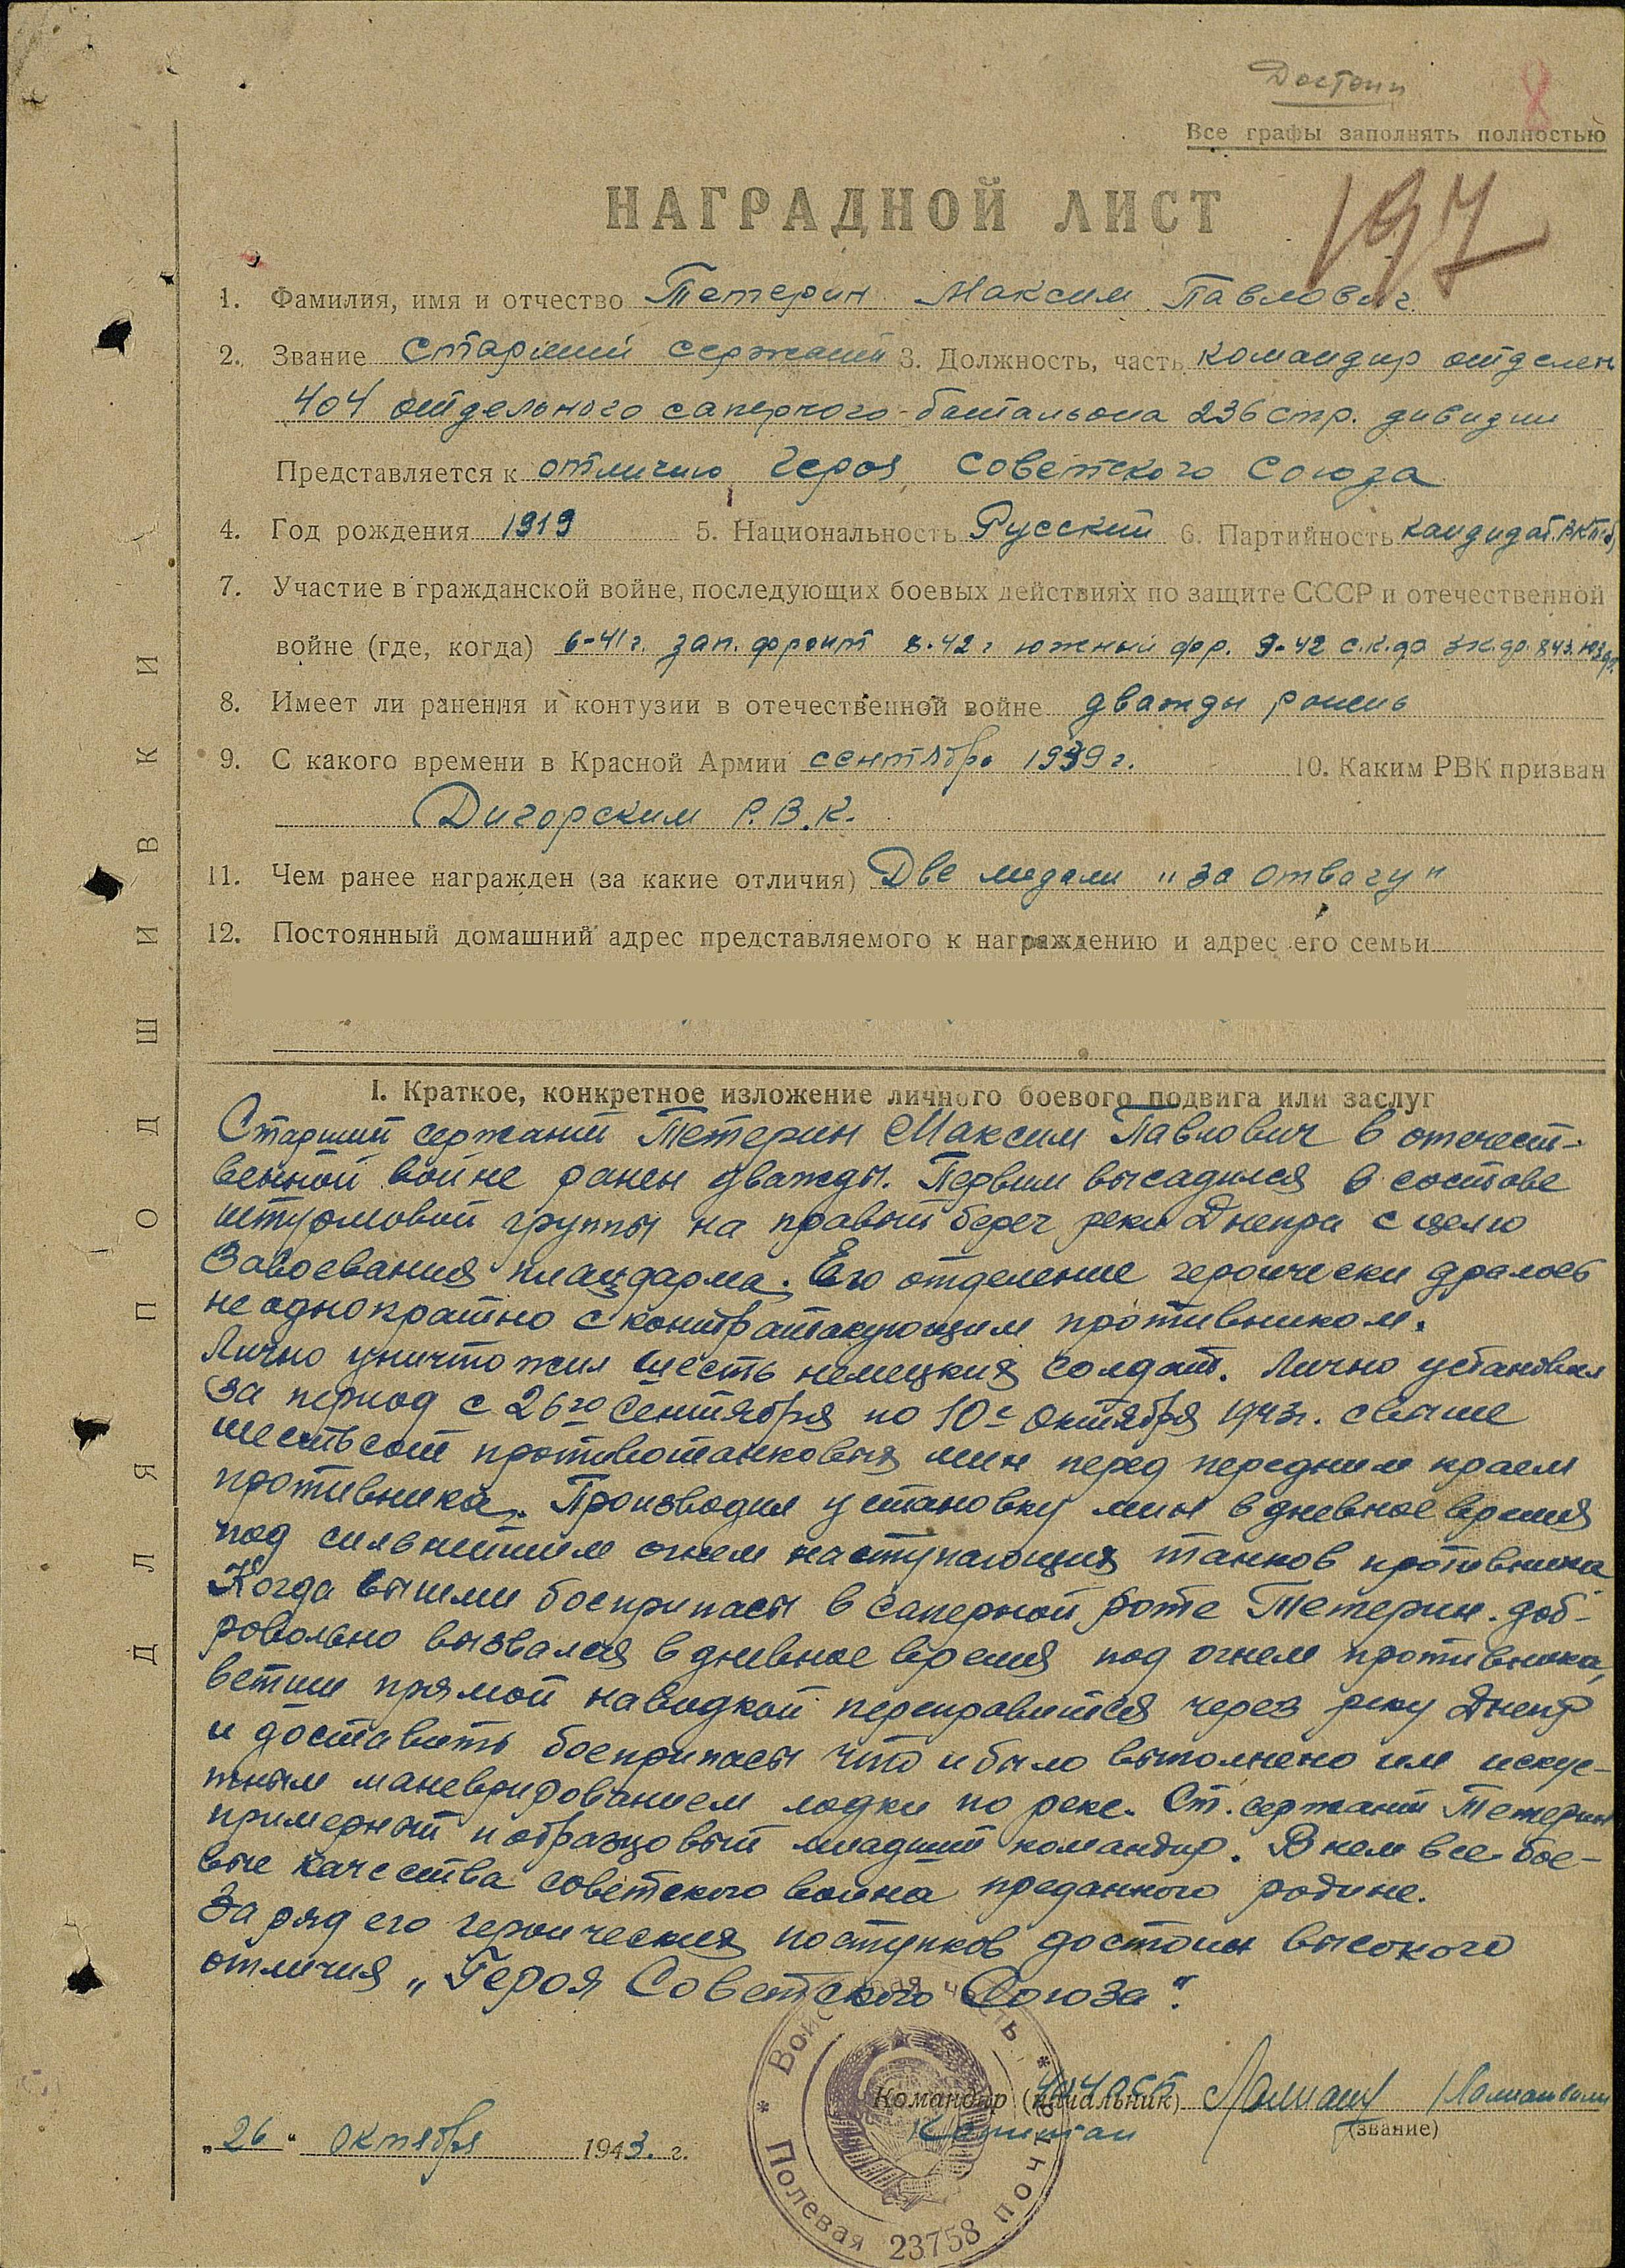 Достоин
8
Все графы заполнять полностью
НАГРАДНОЙ ЛИСТ
197
1. Фамилия, имя и отчество Тетерин Максим Павлович
2. Звание Старший сержант 3. Должность, часть командир отделен
404 отдельного саперного батальона 236 стр. дивизии
Представляется к отличию Героя Советского Союза
4. Год рождения 1919 5. Национальность Русский 6. Партийность кандидат ВКП(б)
7. Участие в гражданской войне, последующих боевых действиях по защите СССР и отечественной
войне (где, когда) 6-41 г. зап. фронт 8.42 г южный фр. 9-42 с.к.ф.
8. Имеет ли ранения и контузии в отечественной войне дважды ранен
9. С какого времени в Красной Армии сентябрь 1939 г. 10. Каким РВК призван
Дигорским Р.В.К.
11. Чем ранее награжден (за какие отличия) Две медали "за отвагу"
12. Постоянный домашний адрес представляемого к награждению и адрес его семьи
I. Краткое, конкретное изложение личного боевого подвига или заслуг
Старший сержант Тетерин Максим Павлович в отечест-
венной войне ранен дважды. Первым высадился в составе
штурмовой группы на правый берег реки Днепра с целю
завоевания плацдарма. Его отделение героически дралось
неоднократно с контратакующим противником.
Лично уничтожил шесть немецких солдат. Лично установил
за период с 26го Сентября по 10е Октября 1943г. свыше
шестьсот противотанковых мин перед передним краем
противника. Производил установку мин в дневное время
под сильнейшим огнем наступающих танков противника
Когда вышли боеприпасы в саперной роте Тетерин доб-
ровольно вызвался в дневное время под огнем противника,
ветши прямой наводкой переправится через реку Днепр
и доставить боеприпасы что и было выполнено им искус-
тным маневрированием лодки по реке. Ст. сержант Тетерин
примерный и образцовый младший командир. В нем все бое-
вые качества советского воина преданного родине.
За ряд его героических поступков достоин высокого
отличия „Героя Советского Союза".
Командир (начальник)
Капитан
(звание)
„26" октября 1943. г.
* Войсковая часть * Полевая почта 23758
ДЛЯ ПОДШИВКИ